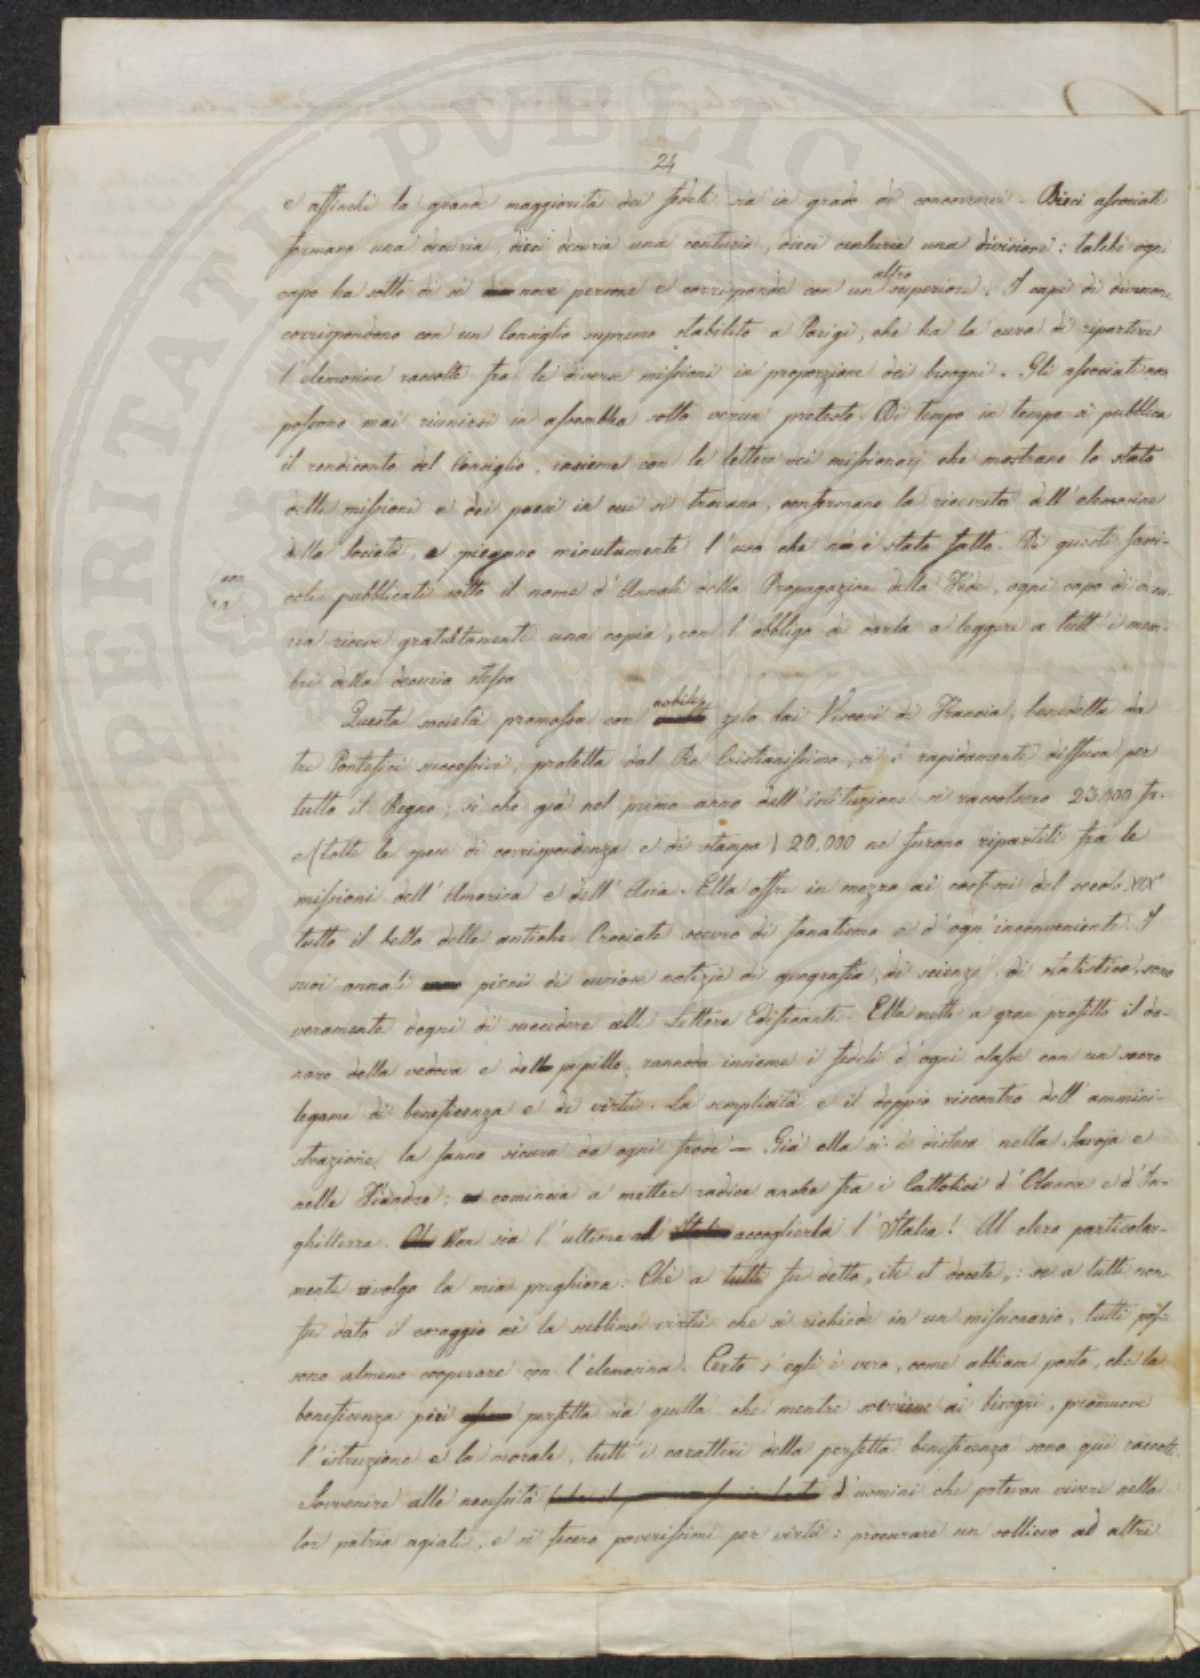 24
e affinchè la grande maggiorità dei fedeli sia in grado di concorrervi. Dieci associati
formano una decuria, dieci decurie una centuria, dieci centurie una divisione: talchè ogni
capo ha sotto di sè nove persone e corrisponde con un altro superiore. I capi di divisione
corrispondono con un Consiglio supremo stabilito a Parigi, che ha la cura di ripartire
l'elemosine raccolte fra le diverse missioni in proporzione dei bisogni. Gli associati non
possono mai riunirsi in assemblea sotto verun pretesto. Di tempo in tempo si pubblica
il rendiconto del Consiglio, insieme con le lettere dei missionarj che mostrano lo stato
delle missioni e dei paesi in cui si trovano, confermano la ricevuta dell'elemosine
della Società, e spiegano minutamente l'uso che n'è stato fatto. Di questi fasci-
coli pubblicati sotto il nome d'Annali della Propagazion della Fede, ogni capo di decu-
ria riceve gratuitamente una copia, con l'obbligo di darla a leggere a tutt'i mem-
bri della decuria stessa
Questa società promossa con nobile zelo dai Vescovi di Francia, benedetta da
tre Pontefici successivi, protetta dal Re Cristianissimo, si è rapidamente diffusa per
tutto il Regno; sì che già nel primo anno dell'istituzione si raccolsero 23.000 fr.
e (tolte le spese di corrispondenza e di stampa) 20.000 ne furono ripartiti fra le
missioni dell'America e dell'Asia. Ella offre in mezzo ai costumi del secolo XIX°
tutto il bello delle antiche Crociate scevro di fanatismo e d'ogn'inconveniente. I
suoi annali pieni di curiose notizie di geografia, di scienze, di statistica, sono
veramente degni di succedere alle Lettere Edificanti. Ella mette a gran profitto il da-
naro della vedova e del pupillo; rannoda insieme i fedeli d'ogni classe con un sacro
legame di beneficenza e di virtù. La semplicità e il doppio riscontro dell'ammini-
strazione la fanno sicura da ogni frode — Già ella si è distesa nella Savoja e
nelle Fiandre; comincia a metter radice anche fra i Cattolici d'Olanda e d'In-
ghilterra. Non sia l'ultima ad accoglierla l'Italia! Al clero particolar-
mente rivolgo la mia preghiera. Chè a tutti fu detto, ite et docete,: se a tutti non
fu dato il coraggio nè la sublime virtù che si richiede in un missionario, tutti pos-
sono almeno cooperare con l'elemosina. Certo s'egli è vero, come abbiam posto, che la
beneficenza più perfetta sia quella che mentre sovviene ai bisogni, promuove
l'istruzione e la morale, tutt'i caratteri della perfetta beneficenza sono qui raccolti.
Sovvenire alle necessità d'uomini che potevan vivere nella
lor patria agiati, e si fecero poverissimi per virtù: procurare un sollievo ad altri